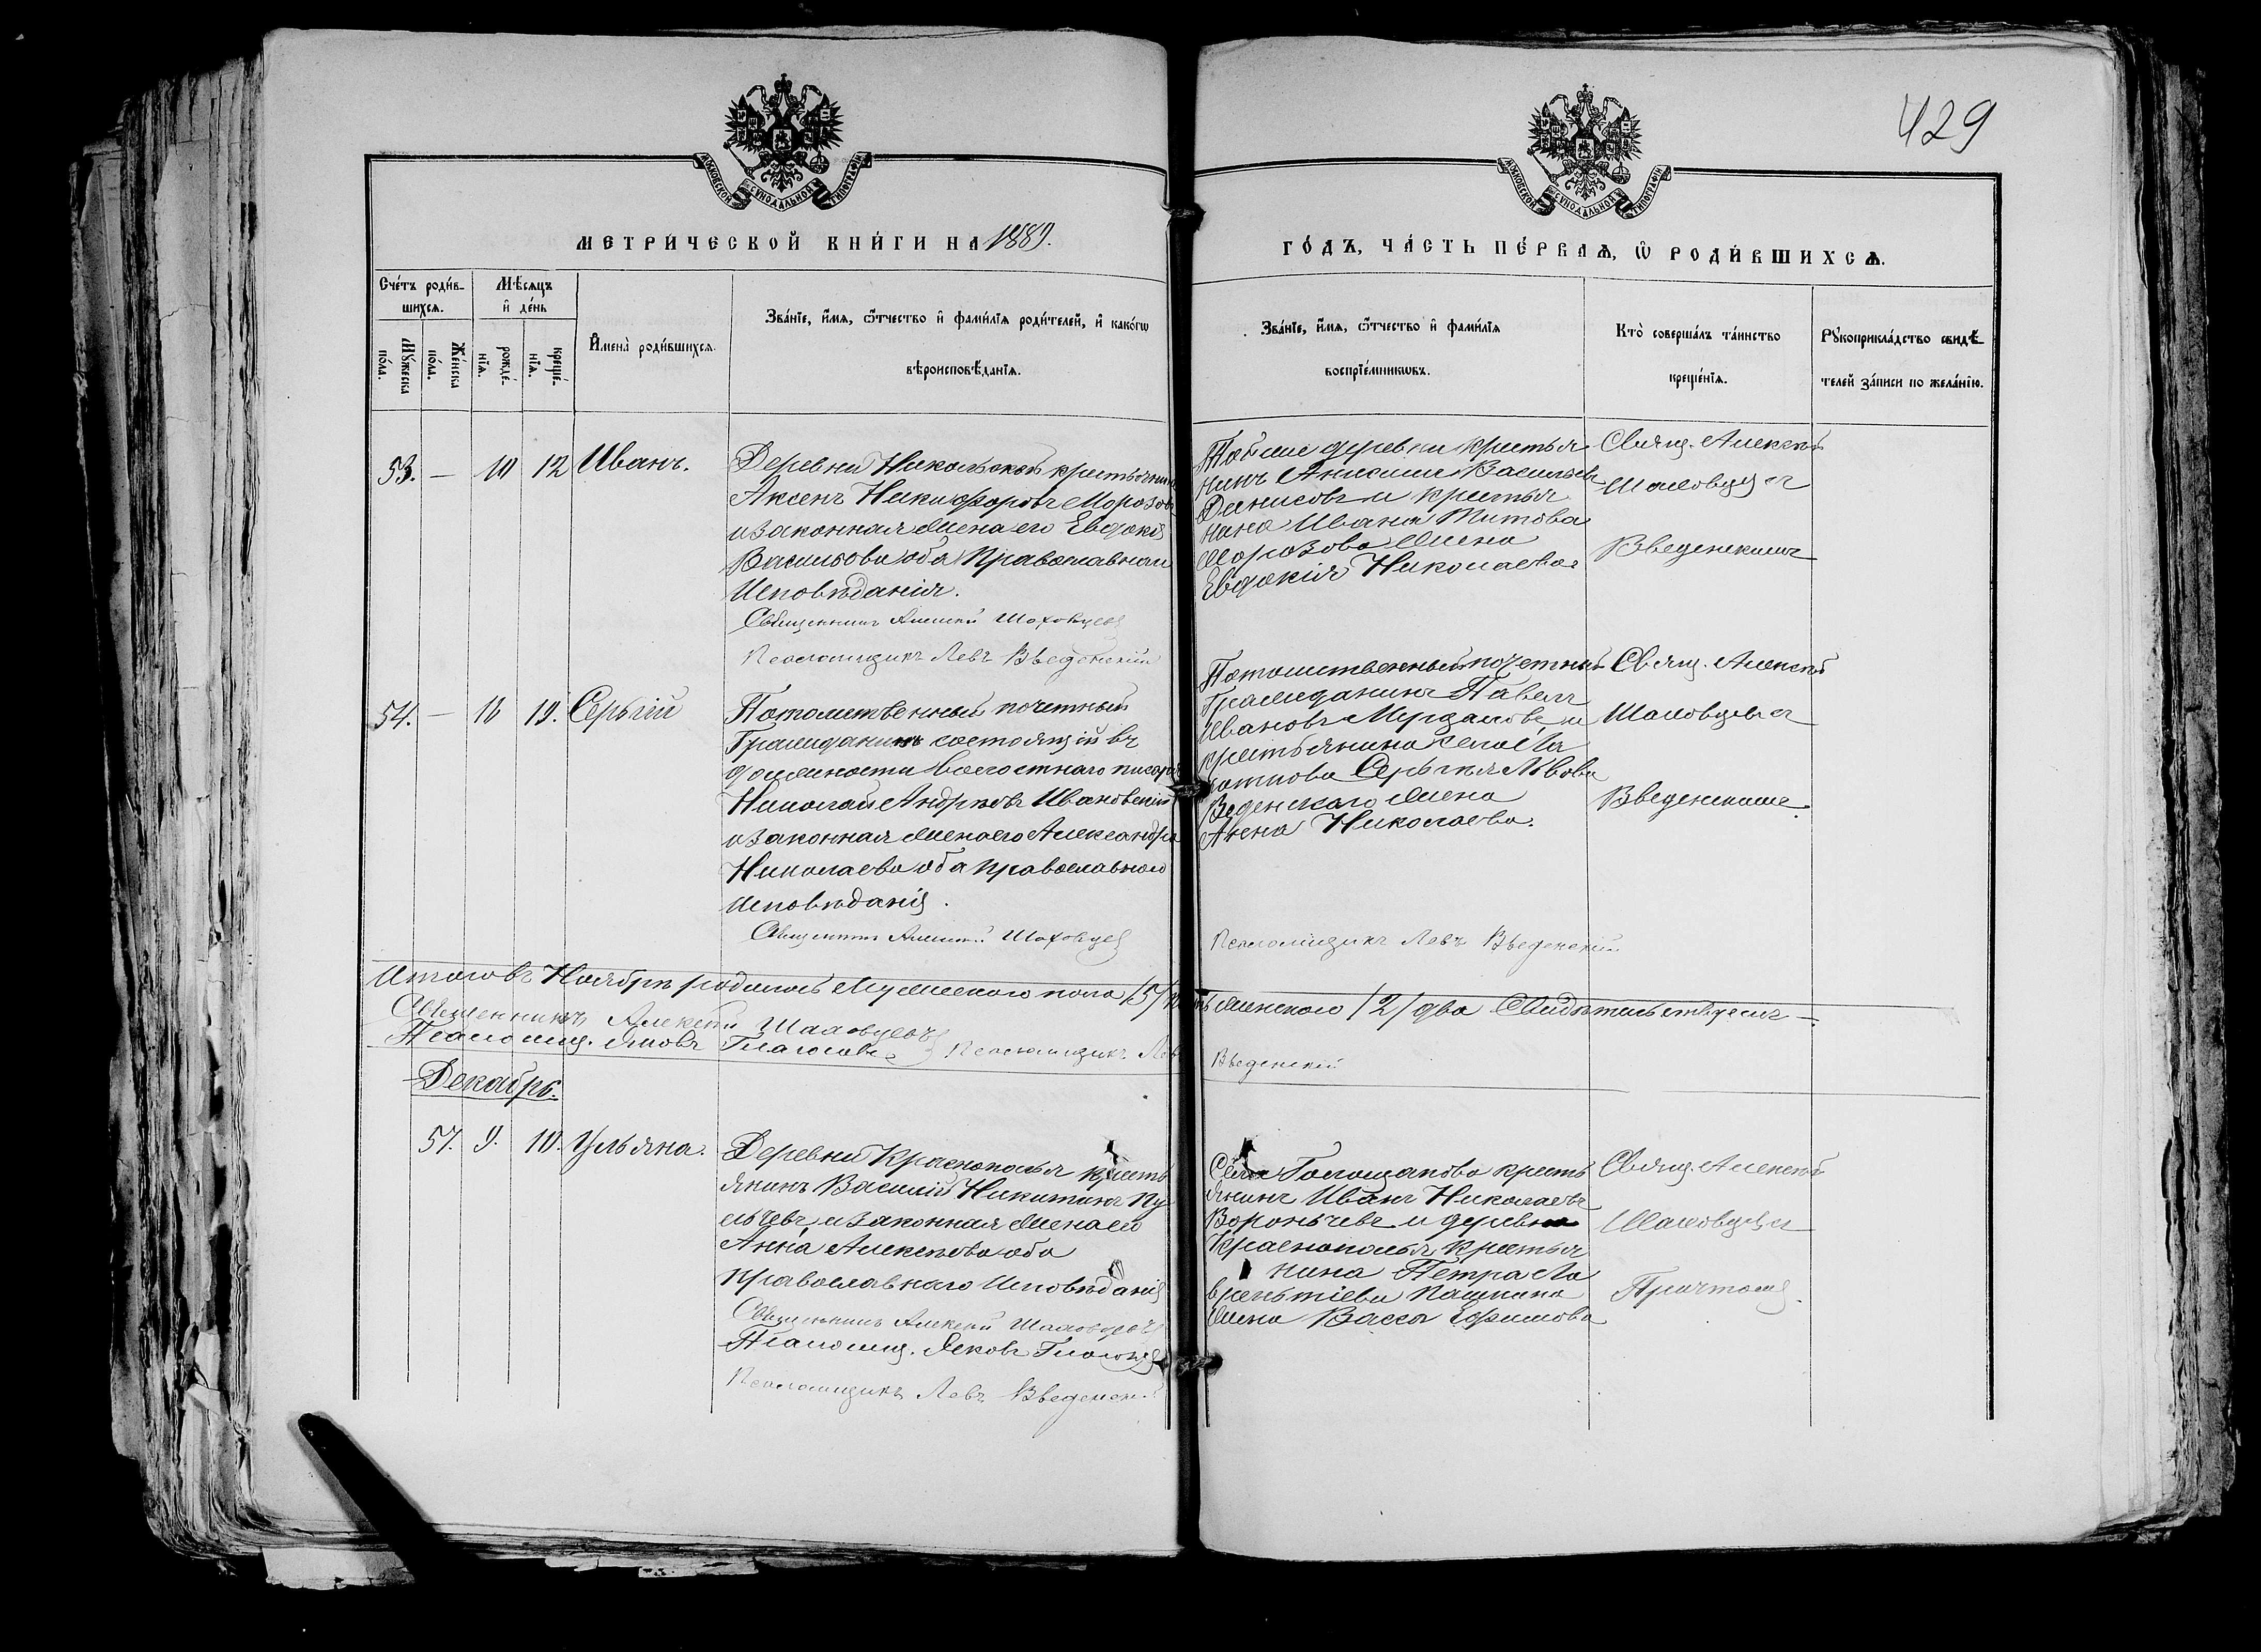 429
МОСКОВСКОЙ СѴНОДАЛЬНОЙ ТИПОГРАФІИ
МОСКОВСКОЙ СѴНОДАЛЬНОЙ ТИПОГРАФІИ
МЕТРИ́ЧЕСКОЙ КНИ́ГИ НА 1889.
ГО́ДЪ, ЧА́СТЬ ПЕ́РВАѦ, Ѡ҆ РОДИ́ВШИХСѦ.
Сче́тъ роди́в-
шихсѧ.
Мѣ́сяцъ
и҆ де́нь
Му́жеска
по́ла.
Же́нска
по́ла.
рожде́-
нїѧ.
креще́-
нїѧ.
И҆мена̀ роди́вшихсѧ.
Зва́нїе, и҆́мѧ, ѻ҆́тчество и҆ фами́лїѧ роди́телей, и҆ како́гѡ
вѣроисповѣ́данїѧ.
Зва́нїе, и҆́мѧ, ѻ҆́тчество и҆ фами́лїѧ
воспрїе́мникѡвъ.
Кто̀ соверша́лъ та́инство
креще́нїѧ.
Рꙋкоприкла́дство свидѣ́-
телей за́писи по жела́нїю.
53. — 10 12 Иванъ.
Деревни Никольской крестьянинъ
Аксенъ Никифоровъ Морозовъ
и законная жена его Евдокія
Васильева оба Православнаго
Исповѣданія.
Священникъ Алексѣй Шаховцевъ
Псаломщикъ Левъ Введенскій
Той же деревни крестья
нинъ Анисимъ Васильевъ
Денисовъ и крестья
нина Ивана Титова
Морозова жена
Евдокія Николаева.
Свящ. Алексѣй
Шаховцевъ
Введенскимъ
54. — 16 19. Сергѣй
Потомственный почетный
Гражданинъ состоящій въ
должности волостнаго писаря
Николай Андреевъ Ивановскій
и законная жена его Александра
Николаева оба православнаго
Исповѣданія.
Священникъ Алексѣй Шаховцевъ
Псаломщикъ Левъ Введенскій
Потомственный почетный
Гражданинъ Павелъ
Ивановъ и
крестьянина села Ла
Сергѣя Львова
Веденскаго жена
Анна Николаева.
Свящ. Алексѣй
Шаховцевъ
Введенскимъ.
Итого въ Ноябрѣ родилось Мужескаго пола /5/ пять женскаго /2/ два Свидѣтельствуемъ —.
Священникъ Алексѣй Шаховцевъ
Псаломщ. Яковъ Глаголевъ Псаломщикъ Левъ Введенскій
Декабрь.
57. 9. 10. Ульяна.
Деревни Краснополья кресть
янинъ Василій Никитинъ Пу
и законная жена его
Анна Алексѣева оба
православнаго Исповѣданія
Священникъ Алексѣй Шаховцевъ
Псаломщ. Яковъ Глаголевъ
Псаломщикъ Левъ Введенскій
Села Голощапова кресть
янинъ Иванъ Николаевъ
и деревни
Краснополья крестья
нина Петра Ла
врентіева Пашкина
жена Васса Ефимова
Свящ. Алексѣй
Шаховцевъ
Причтомъ.